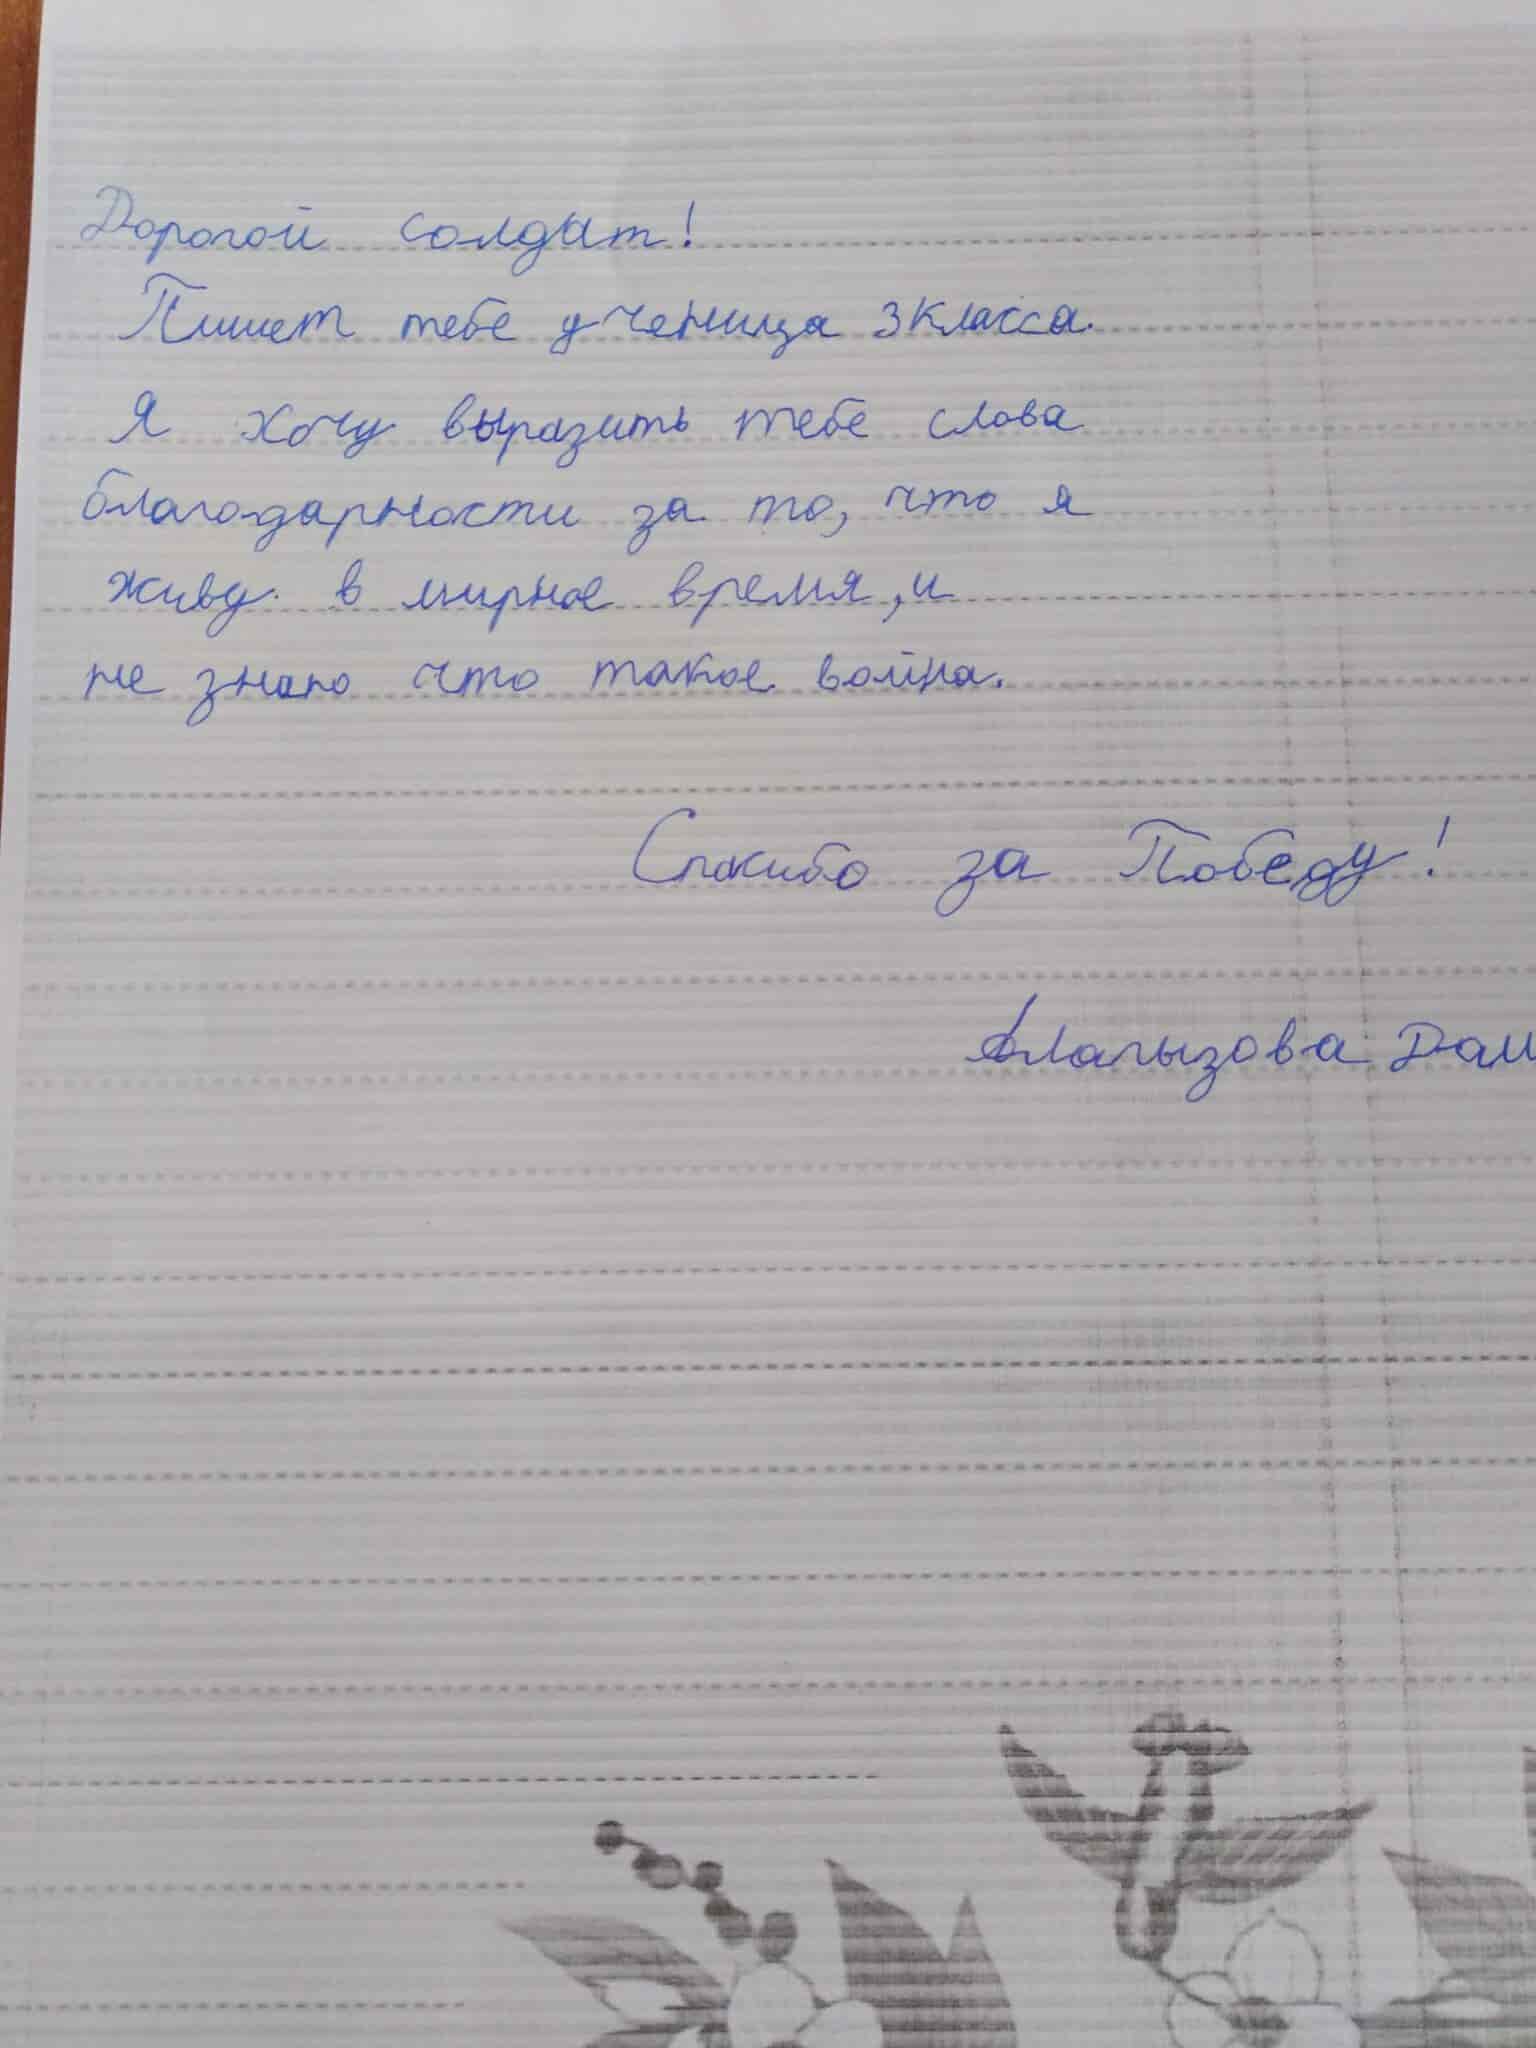 Дорогой солдат!
Пишет тебе ученица 3 класса.
Я хочу выразить тебе слова
благодарности за то, что я
живу в мирное время, и
не знаю что такое война.
Спасибо за Победу!
Алагызова